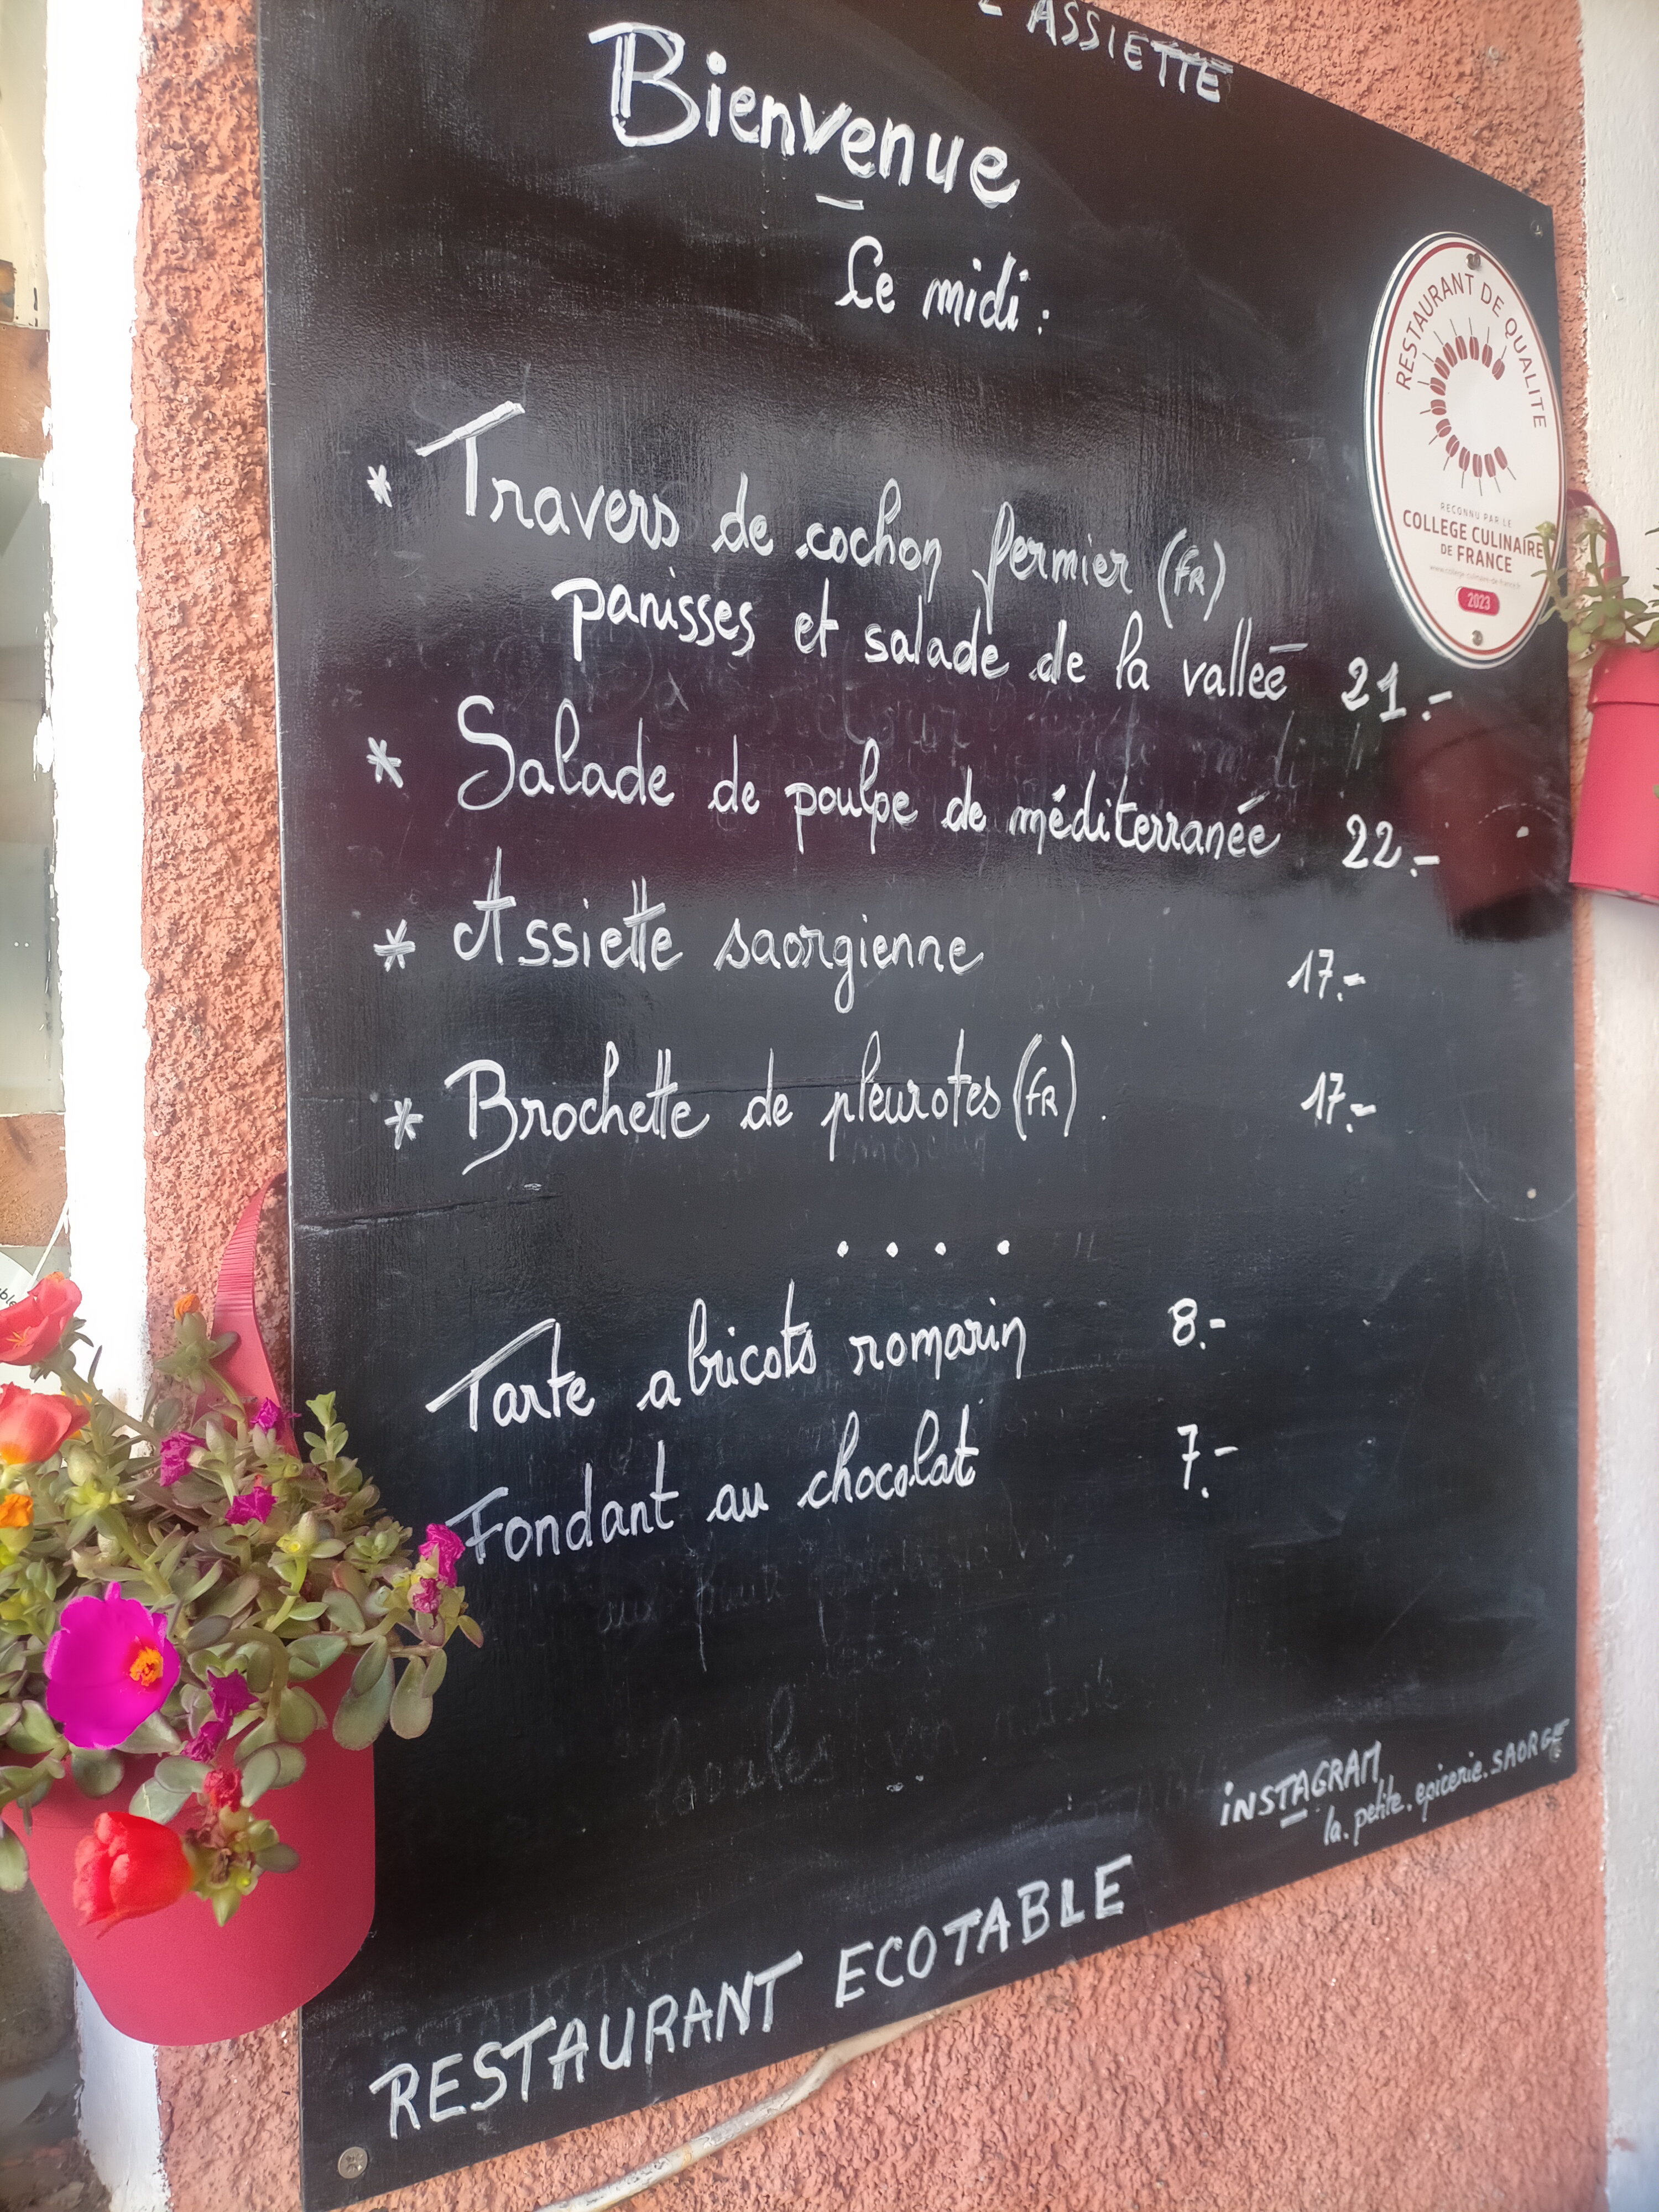 L'ASSIETTE
Bienvenue
Ce midi :
* Travers de cochon fermier (FR)
panisses et salade de la vallée 21.-
* Salade de poulpe de méditerranée 22.-
* Assiette saorgienne 17.-
* Brochette de pleurotes (FR). 17.-
....
Tarte abricots romarin 8.-
Fondant au chocolat 7.-
INSTAGRAM
la.petite.epicerie.SAORGE
RESTAURANT ECOTABLE
RESTAURANT DE QUALITE
RECONNU PAR LE
COLLEGE CULINAIRE
DE FRANCE
www.college-culinaire-de-france.fr
2023